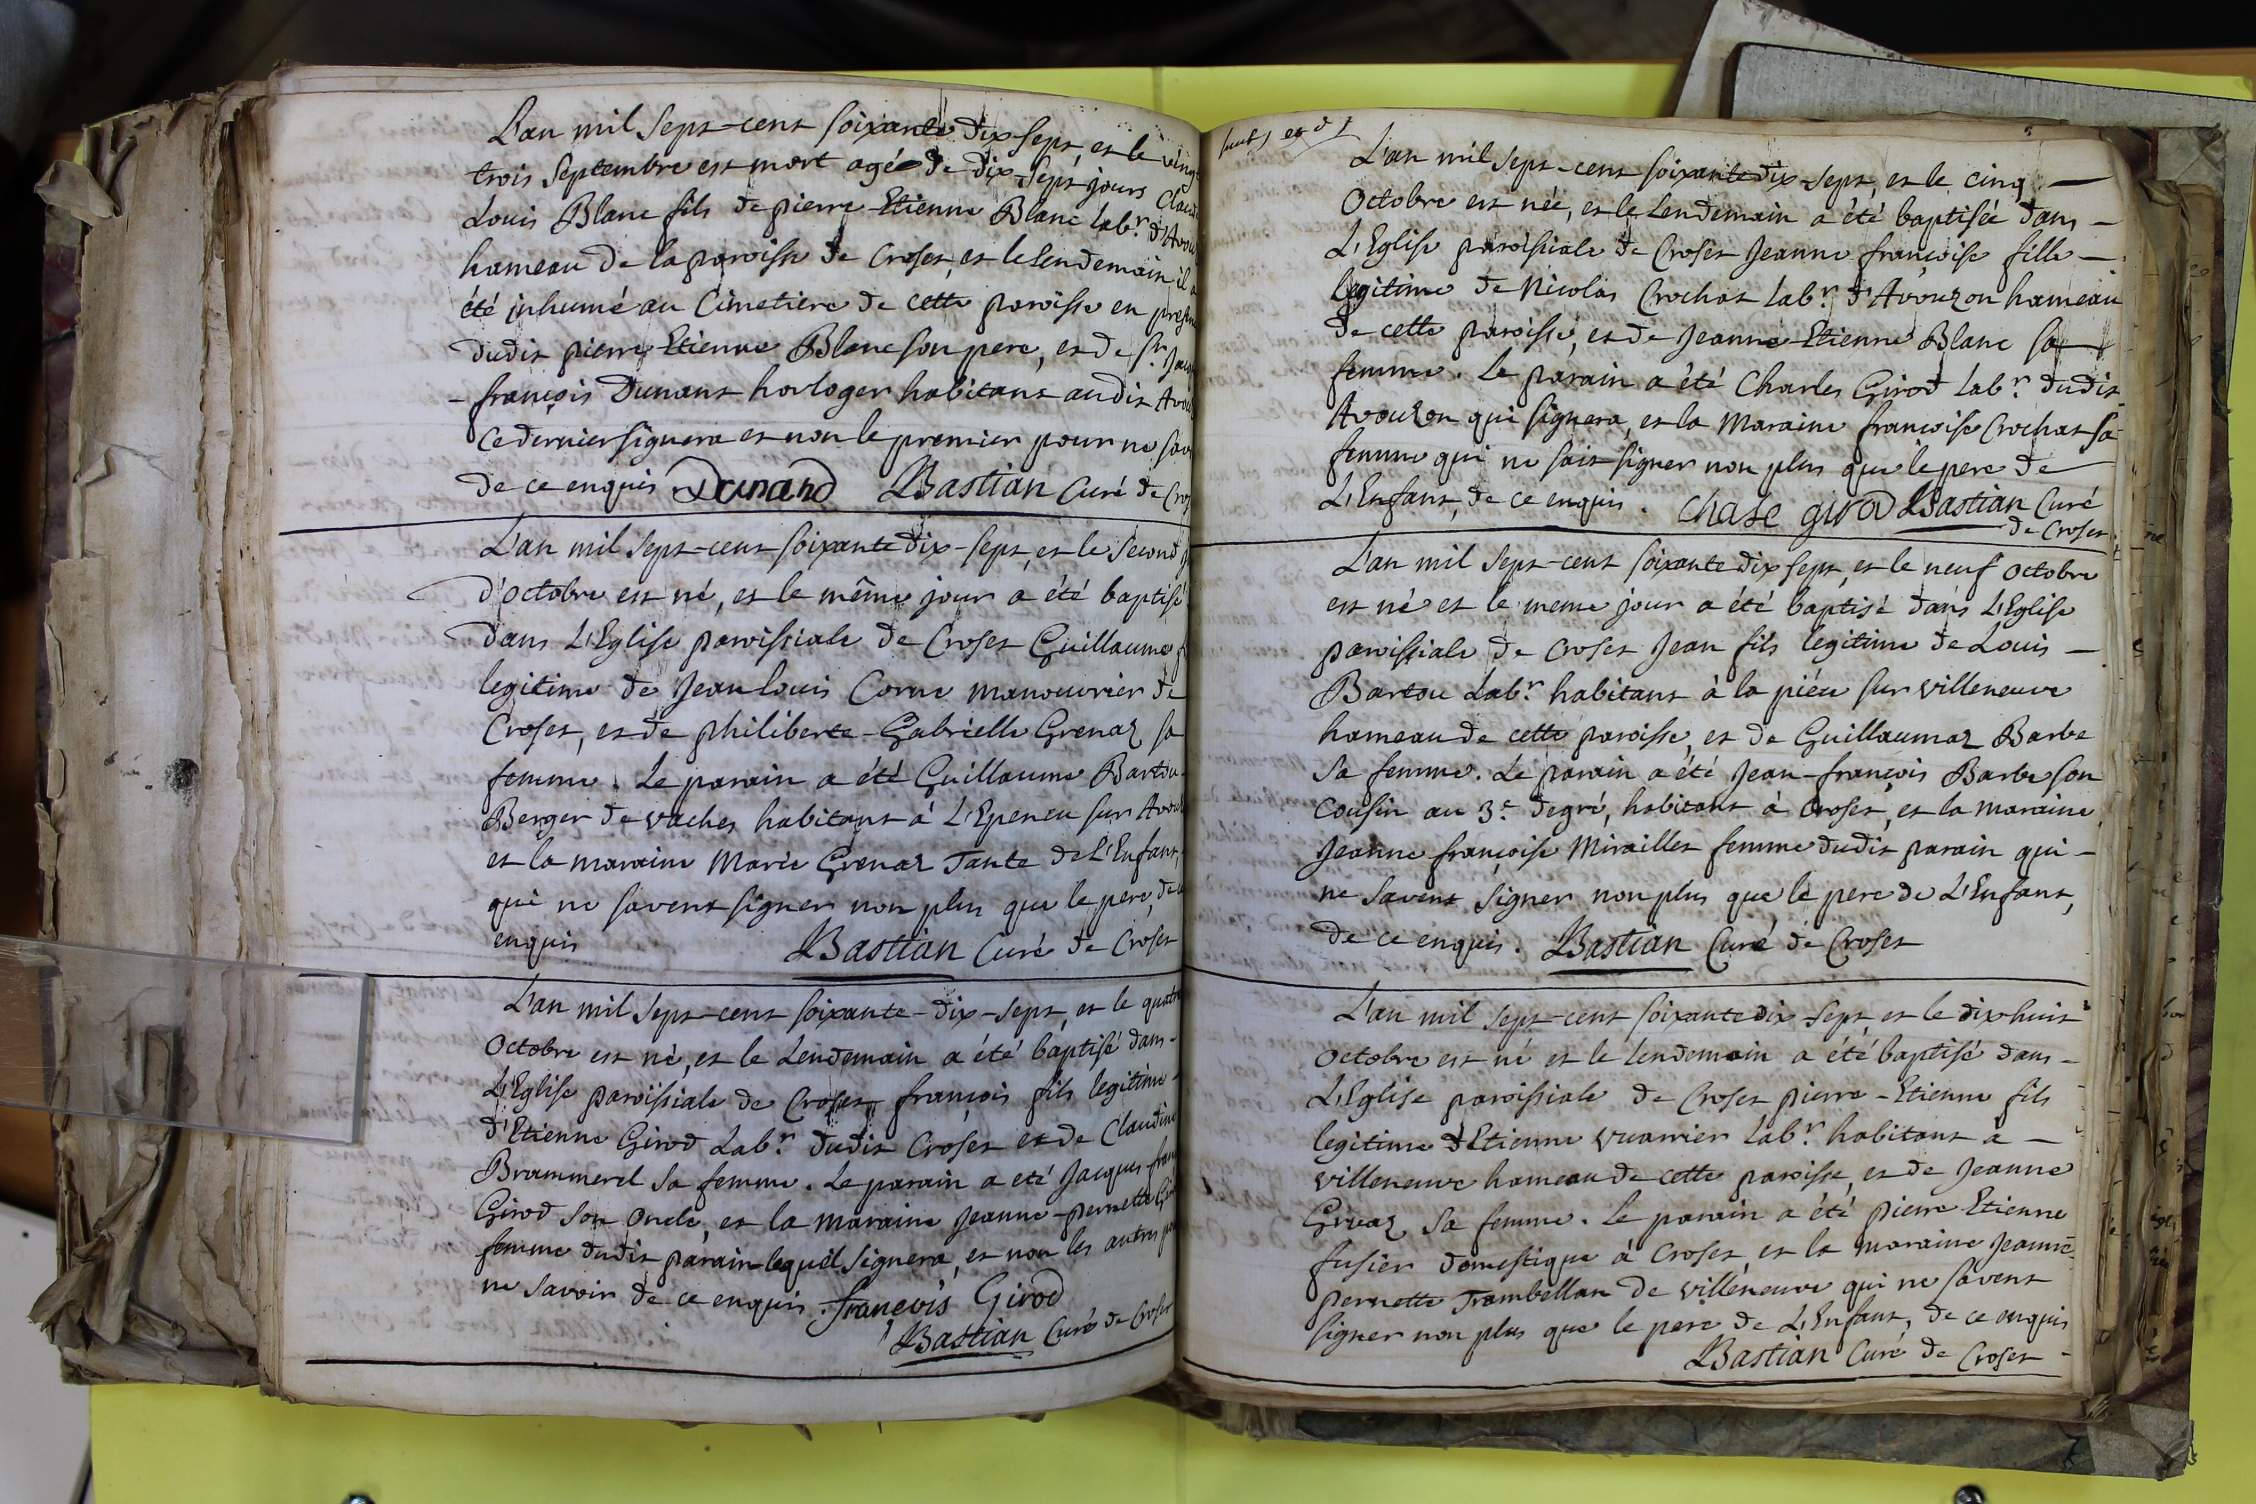 L'an mil sept-cent soixante dix-sept, et le vingt
trois Septembre est mort agé de dix-sept jours Claude
Louis Blanc fils de pierre-Etienne Blanc lab.r d'Avou
hameau de la paroisse de Croset, et le lendemain il a
été inhumé au Cimetiere de cette paroisse en presen
dudit pierre-Etienne Blanc son pere, et de Sr. Jacq
-françois Dunant horloger habitant audit Avouz
Ce dernier signera et non le premier pour ne savo
de ce enquis Dunand Bastian Curé de Cros
L'an mil sept-cent soixante dix-sept, et le Second
d'octobre est né, et le même jour a été baptisé
dans L'Eglise paroissiale de Croset Guillaume f
legitime de Jean louis Corne manouvrier de
Croset, et de philiberte-Gabrielle Grenaz sa
femme. Le parain a été Guillaume Bartou
Berger de vaches habitant à L'Epeneu sur Avouz
et la maraine Marie Grenaz Tante de L'Enfant,
qui ne savent signer non plus que le pere, de ce
enquis Bastian Curé de Croset
L'an mil sept-cent soixante-dix-sept, et le quatre
Octobre est né, et le Lendemain a été baptisé dans-
L'Eglise paroissiale de Croset françois fils legitime-
d'Etienne Girod Lab.r dudit Croset et de Claudine
Brammerel sa femme. Le parain a eté Jacques fran
Girod son Oncle, et la maraine Jeanne-pernette Gi
femme dudit parain lequel signera, et non les autres pour
ne savoir de ce enquis. françois Girod
Bastian Curé de Croset
L'an mil sept-cent soixante dix-sept, et le cinq —
Octobre est née, et le Lendemain a été baptisée dans —
L'Eglise paroissiale de Croset Jeanne françoise fille —
legitime de Nicolas Crochat Lab.r d'Avouzon hameau
de cette paroisse, et de Jeanne-Etienne Blanc sa
femme. Le parain a été Charles Girod Lab.r dudit
Avouzon qui signera, et la Maraine françoise Crochat sa
femme qui ne sait signer non plus que le pere de
L'Enfant, de ce enquis. Chase girod Bastian Curé
de Croset
L'an mil sept-cent soixante dix sept, et le neuf octobre
est né et le meme jour a été baptisé dans L'Eglise
paroissiale de Croset Jean fils legitime de Louis —
Bartou Lab.r habitant à la piéce sur villeneuve
hameau de cette paroisse, et de Guillaumaz Barbe
sa femme. Le parain a été Jean-françois Barbe son
Cousin au 3.e degré, habitant à Croset, et la maraine
Jeanne françoise Mirailler femme dudit parain qui —
ne savent signer non plus que le pere de L'Enfant,
de ce enquis. Bastian Curé de Croset
L'an mil sept-cent soixante dix-sept et le dix huit
Octobre est né et le lendemain a été baptisé dans —
L'Eglise paroissiale de Croset pierre-Etienne fils
legitime d'Etienne Vuarrier Lab.r habitant a —
villeneuve hameau de cette paroisse, et de Jeanne
sa femme. Le parain a été pierre Etienne
fusier domestique à Croset, et la maraine Jeanne
pernette Trambellan de villeneuve qui ne savent
signer non plus que le pere de L'Enfant, de ce enquis
Bastian Curé de Croset